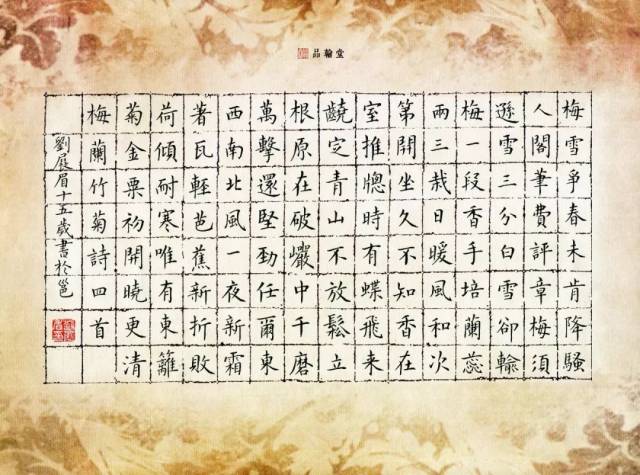 品翰堂
梅雪爭春未肯降騷
人閣筆費評章梅須
遜雪三分白雪卻輸
梅一段香手培蘭蕊
兩三栽日暖風和次
第開坐久不知香在
室推牕時有蝶飛来
齩定青山不放鬆立
根原在破巖中千磨
萬擊還堅勁任爾東
西南北風一夜新霜
著瓦輕芭蕉新折敗
荷傾耐寒唯有東籬
菊金粟初開曉更清
梅蘭竹菊詩四首
劉展眉十五歲書於邕